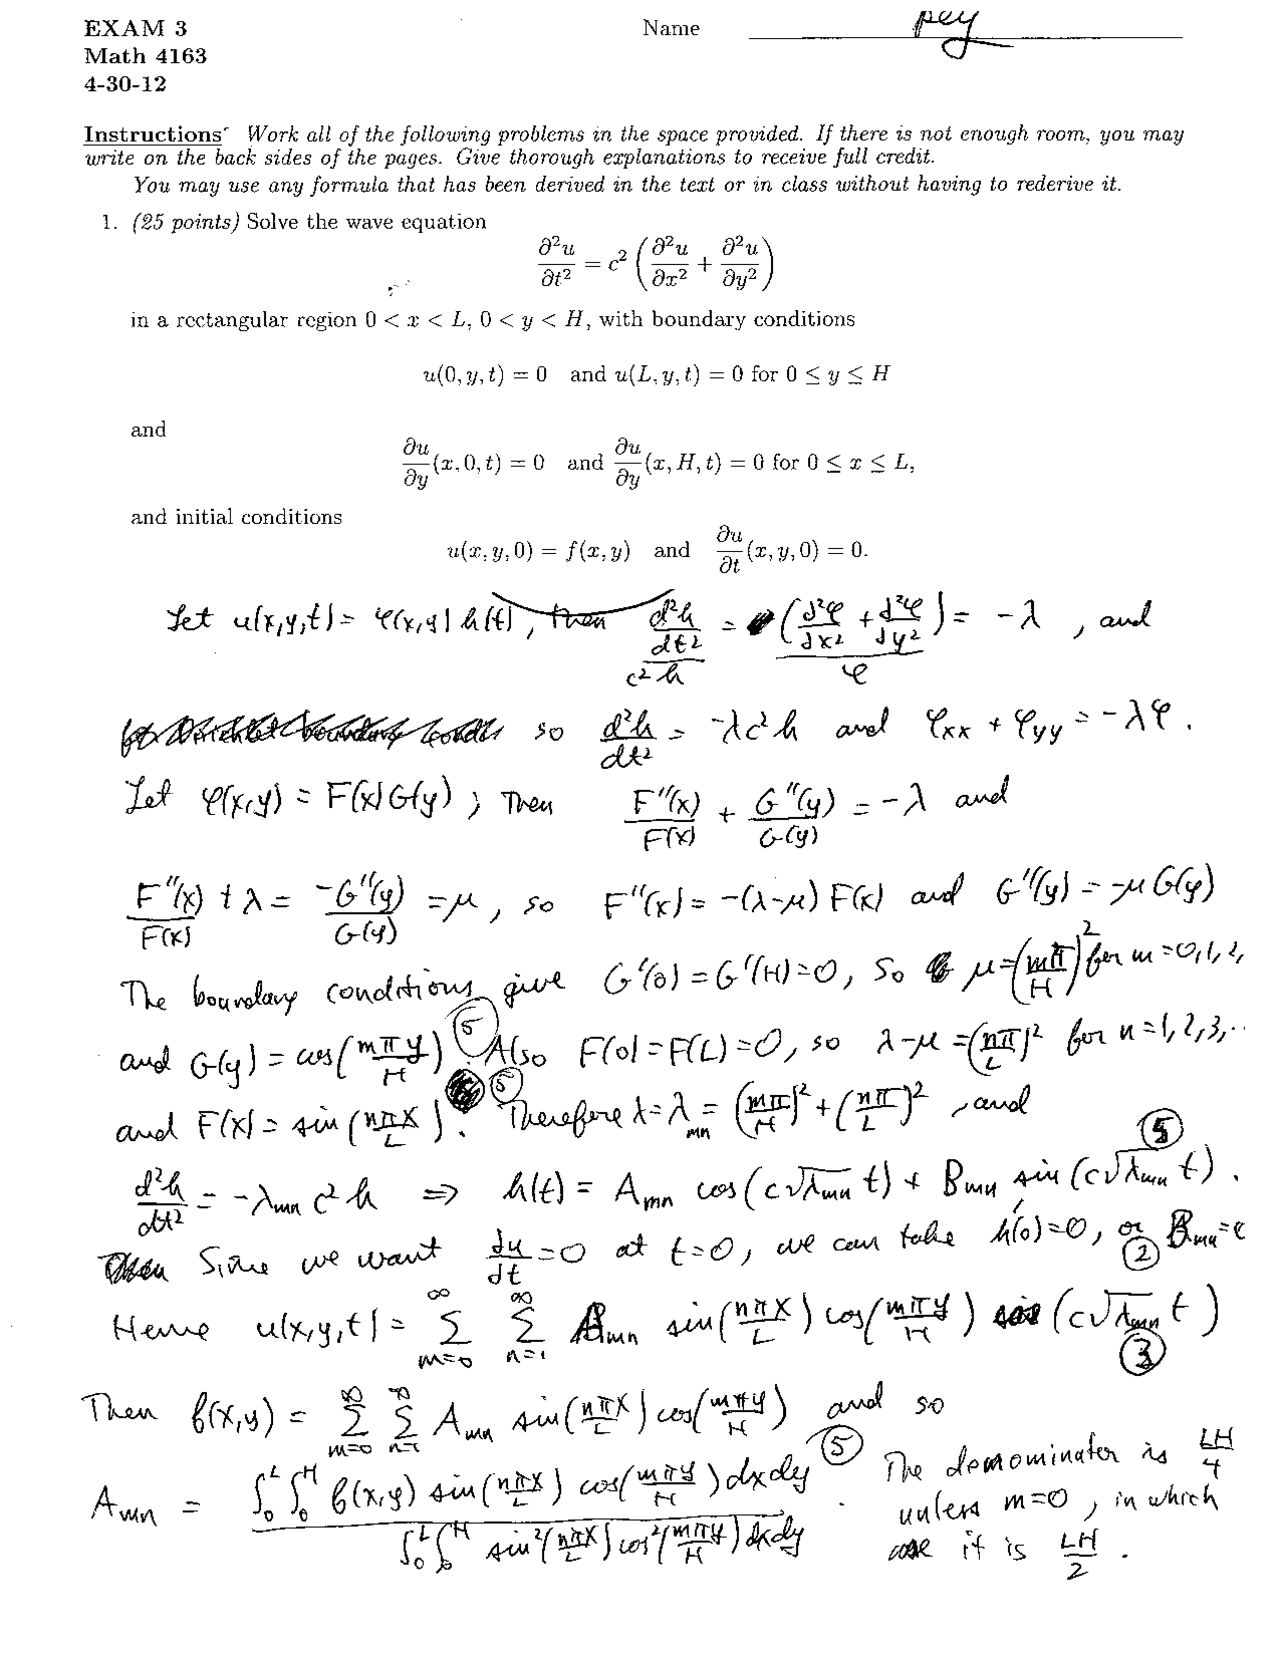 EXAM 3
Name key
Math 4163
4-30-12
Instructions Work all of the following problems in the space provided. If there is not enough room, you may
write on the back sides of the pages. Give thorough explanations to receive full credit.
You may use any formula that has been derived in the text or in class without having to rederive it.
1. (25 points) Solve the wave equation
∂²u/∂t² = c² (∂²u/∂x² + ∂²u/∂y²)
in a rectangular region 0 < x < L, 0 < y < H, with boundary conditions
u(0, y, t) = 0 and u(L, y, t) = 0 for 0 ≤ y ≤ H
and
∂u/∂y (x, 0, t) = 0 and ∂u/∂y (x, H, t) = 0 for 0 ≤ x ≤ L,
and initial conditions
u(x, y, 0) = f(x, y) and ∂u/∂t (x, y, 0) = 0.
Let u(x,y,t) = φ(x,y) h(t), then (d²h/dt²)/(c²h) = (d²φ/dx² + d²φ/dy²)/φ = -λ, and
so d²h/dt² = -λc²h and φxx + φyy = -λφ.
Let φ(x,y) = F(x)G(y); Then F''(x)/F(x) + G''(y)/G(y) = -λ and
F''(x)/F(x) + λ = -G''(y)/G(y) = μ, so F''(x) = -(λ-μ) F(x) and G''(y) = -μ G(y)
The boundary conditions give G'(0) = G'(H) = 0, so μ = (mπ/H)² for m = 0,1,2,
and G(y) = cos(mπy/H). (5) Also F(0) = F(L) = 0, so λ-μ = (nπ/L)² for n = 1,2,3,..
and F(x) = sin(nπx/L). (5) Therefore λ = λmn = (mπ/H)² + (nπ/L)², and
d²h/dt² = -λmn c² h ⇒ h(t) = Amn cos(c√λmn t) + Bmn sin(c√λmn t). (5)
Since we want du/dt = 0 at t = 0, we can take h'(0) = 0, or Bmn = 0 (2)
Hence u(x,y,t) = ∑_{m=0}^∞ ∑_{n=1}^∞ Amn sin(nπx/L) cos(mπy/H) cos(c√λmn t) (3)
Then f(x,y) = ∑_{m=0}^∞ ∑_{n=1}^∞ Amn sin(nπx/L) cos(mπy/H) and so
Amn = ∫₀^L ∫₀^H f(x,y) sin(nπx/L) cos(mπy/H) dxdy / ∫₀^L ∫₀^H sin²(nπx/L) cos²(mπy/H) dxdy. (5)
The denominator is LH/4
unless m=0, in which
case it is LH/2.